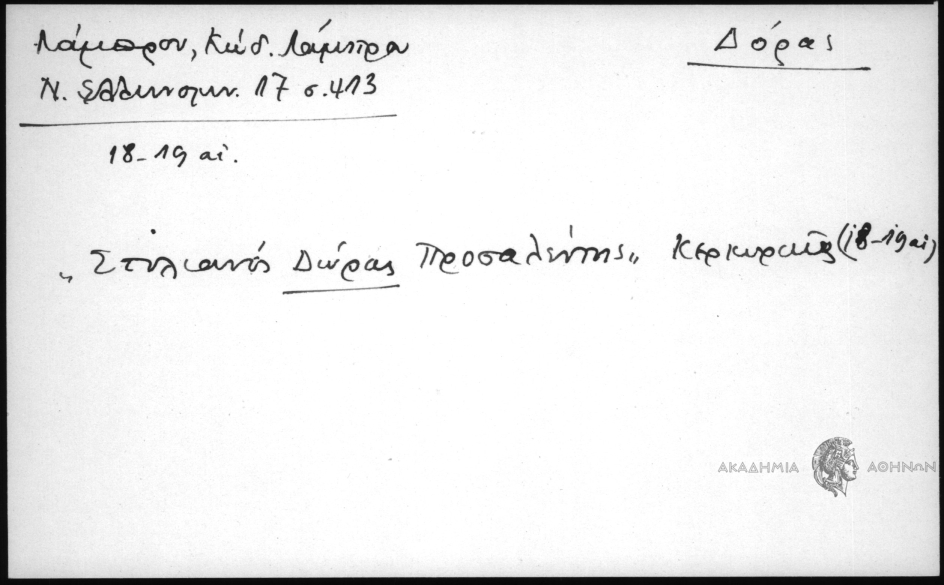 Λάμπρου, Κώδ. Λάμπρα
Δόρας
Ν. Ἑλληνομν. 17 σ. 413
18-19 αἰ.
„Στυλιανός Δώρας Προσαλέντης„ Κερκυραῖος (18-19 αἰ)
ΑΚΑΔΗΜΙΑ ΑΘΗΝΩΝ